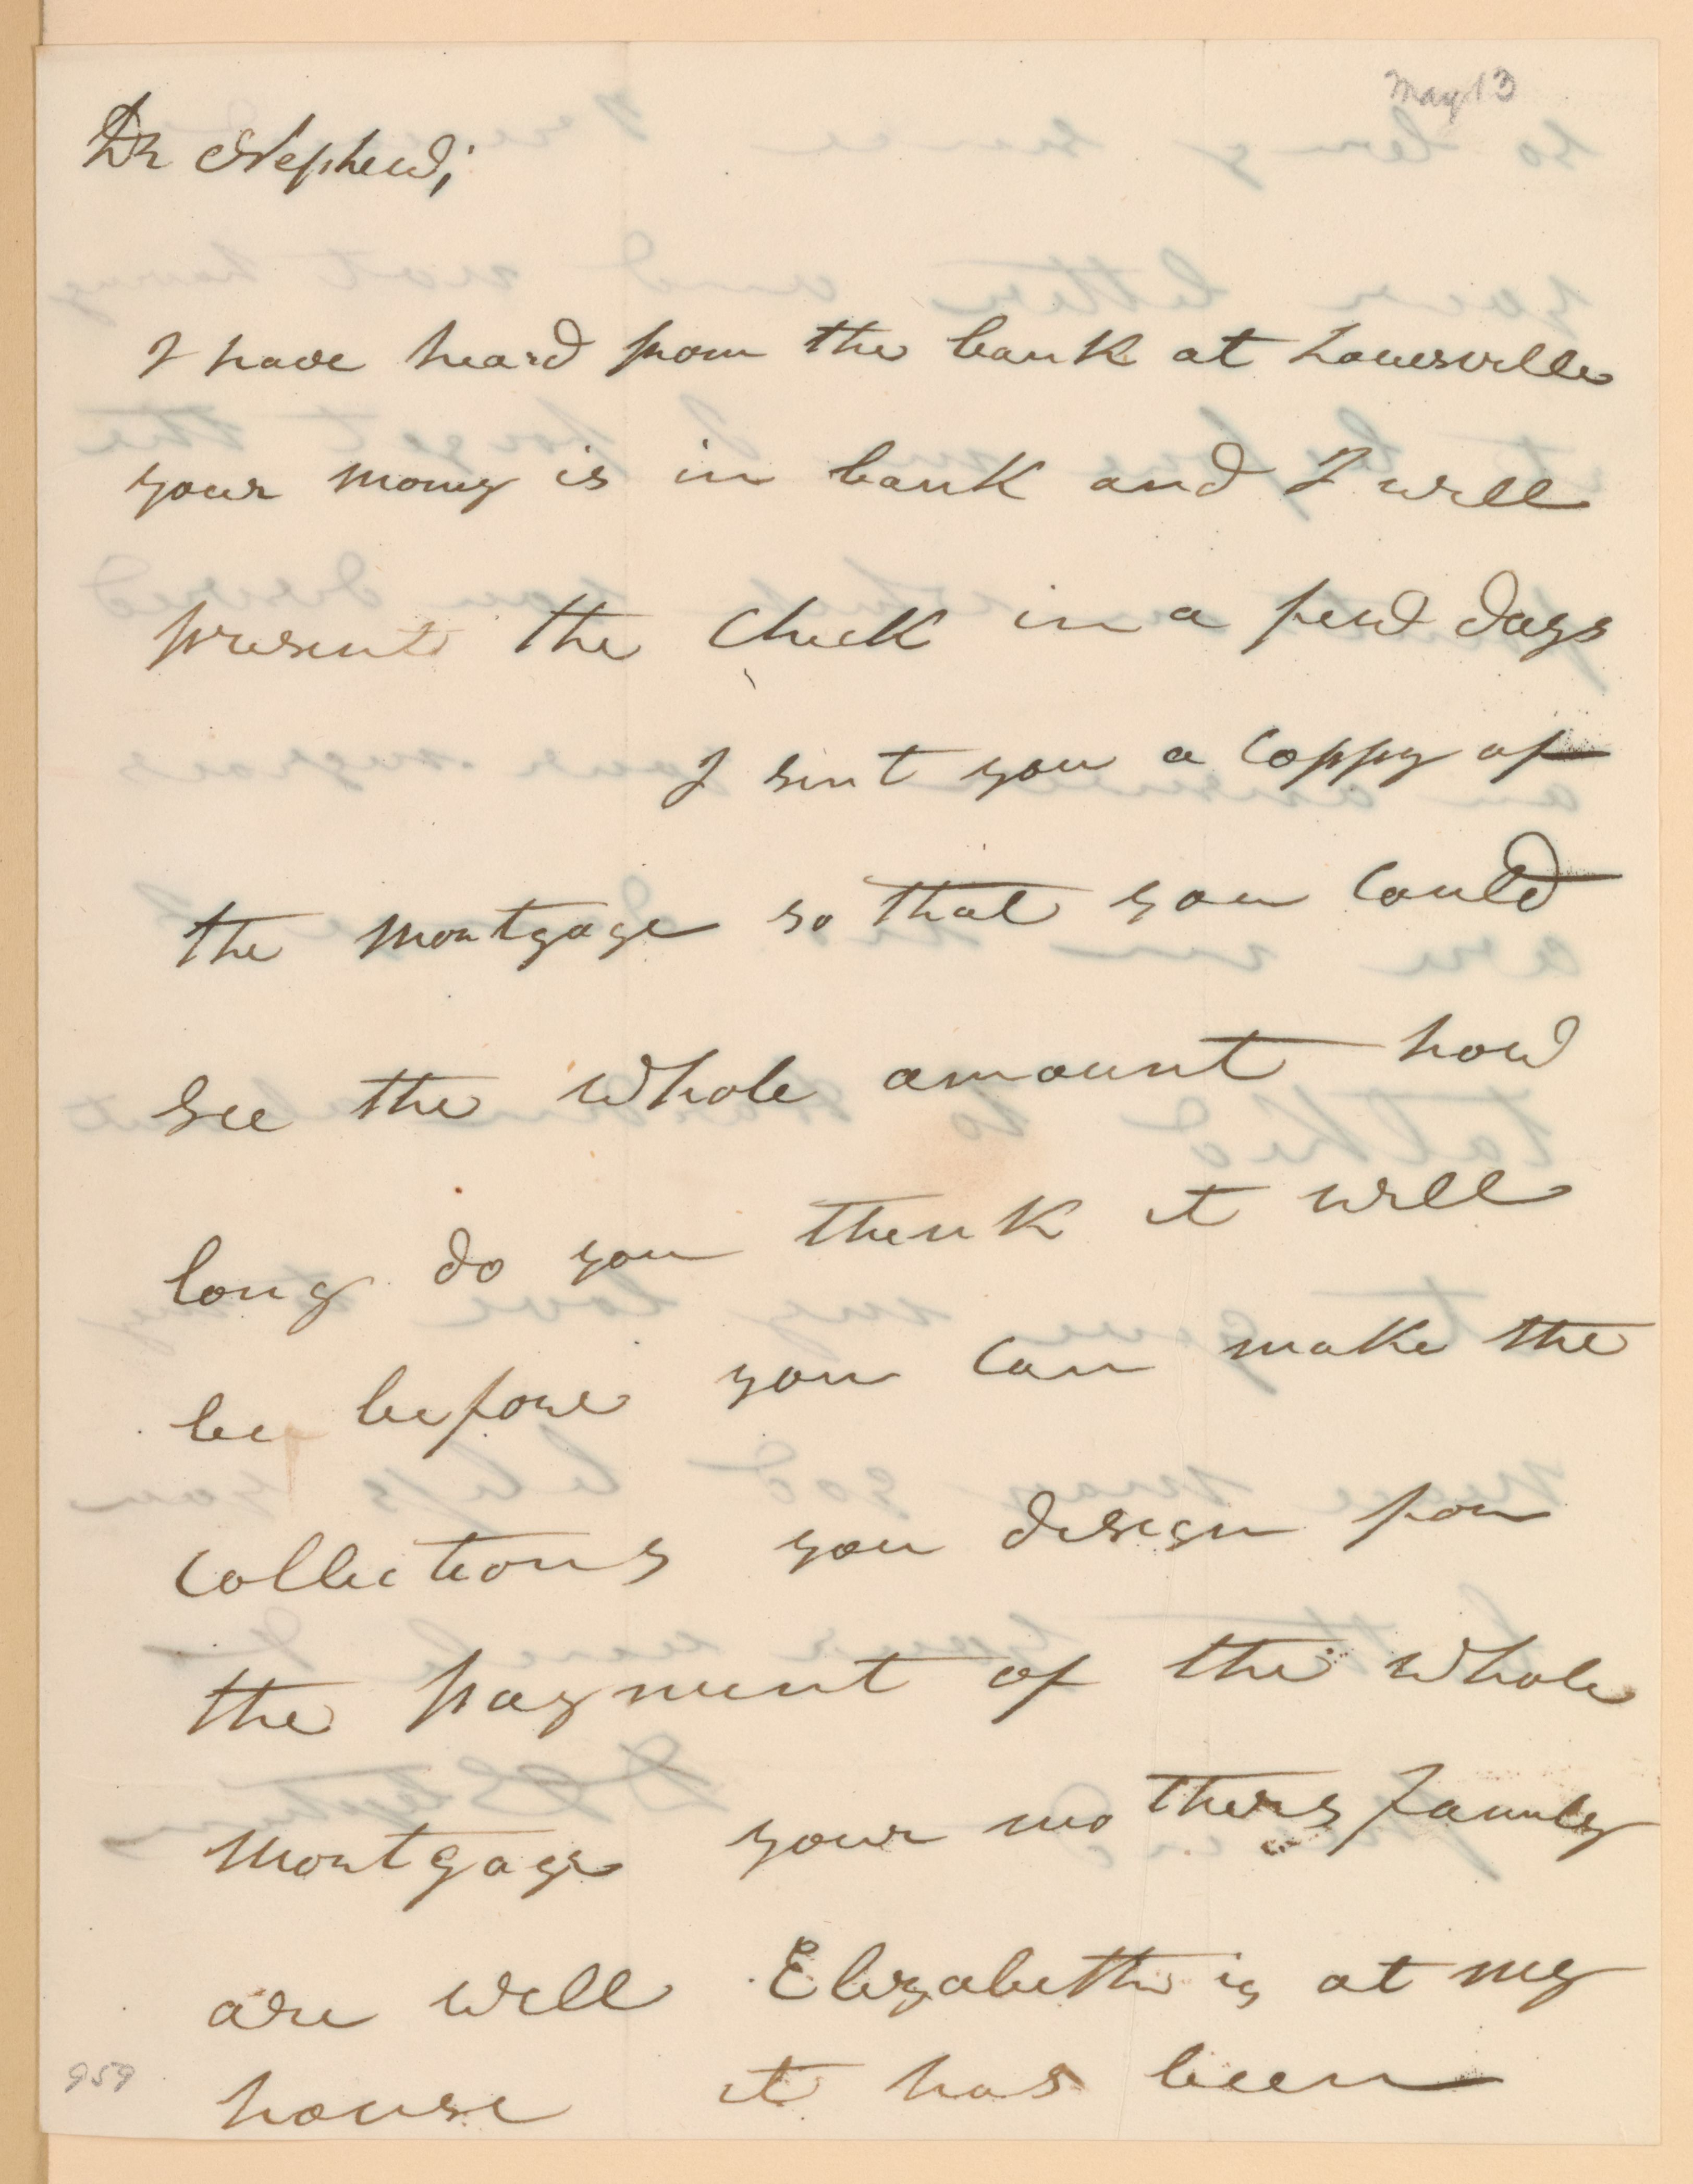 May 13
Dr Nephew;
I have heard from the bank at Louisville
your money is in bank and I will
present the check in a few days
I sent you a coppy of
the mortgage so that you could
see the whole amount how
long do you think it will
be before you can make the
collections you design for
the payment of the whole
mortgage your mothers family
are well Elizabeth is at my
house it has been
959